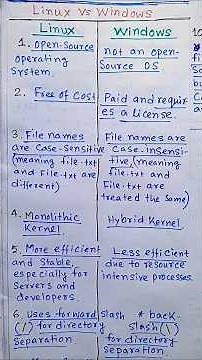 Linux Vs Windows
Linux
Windows
1. Open-Source
operating
System
not an open-
Source OS
2. Free of Cost
Paid and requir-
es a License.
3. File names
are Case-Sensitive
(meaning file.txt
and File.txt are
different)
File names are
Case-insensi-
tive, (meaning
file.txt and
File.txt are
treated the same)
4. Monolithic
Kernel
Hybrid Kernel
5. More efficient
and Stable,
especially for
Servers and
developers
Less efficient
due to resource
intensive processes
6 Uses forward Slash
(/) for directory
Separation
* back-
slash (\)
for directory
Separation